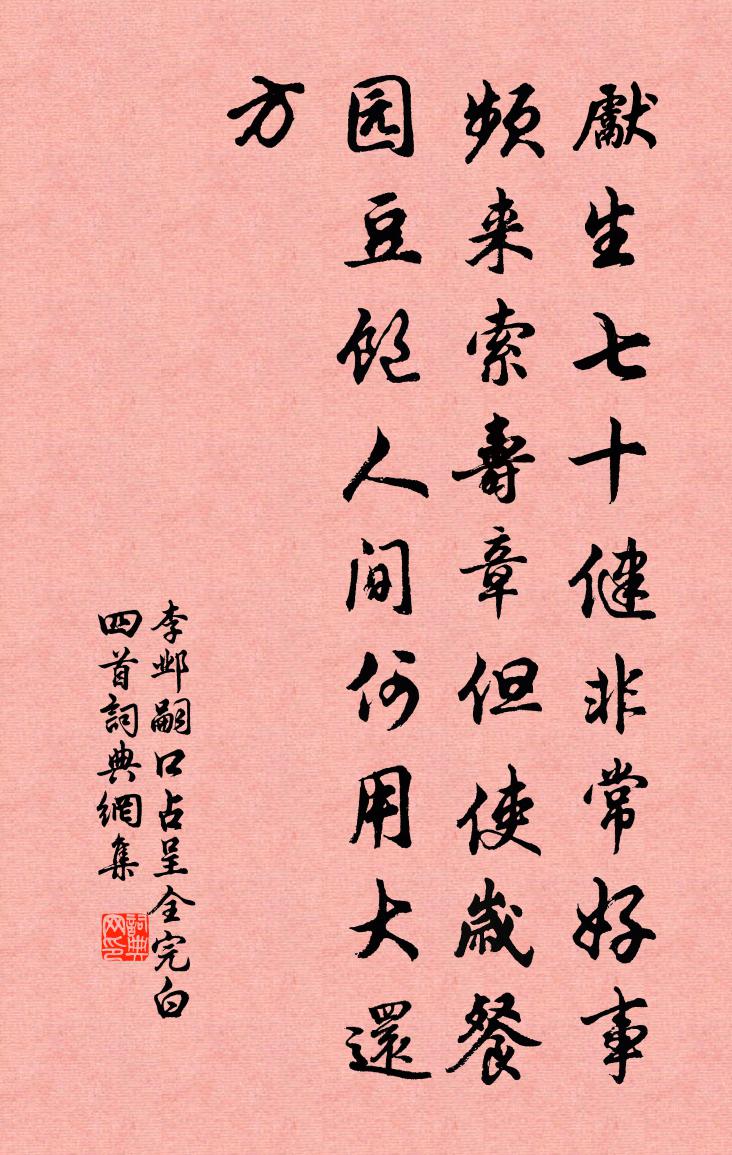 獻生七十健非常好事
頻来索壽章但使歲餐
园豆飽人间何用大還
方
李邺嗣口占呈全完白
四首詞典網集
詞典网印